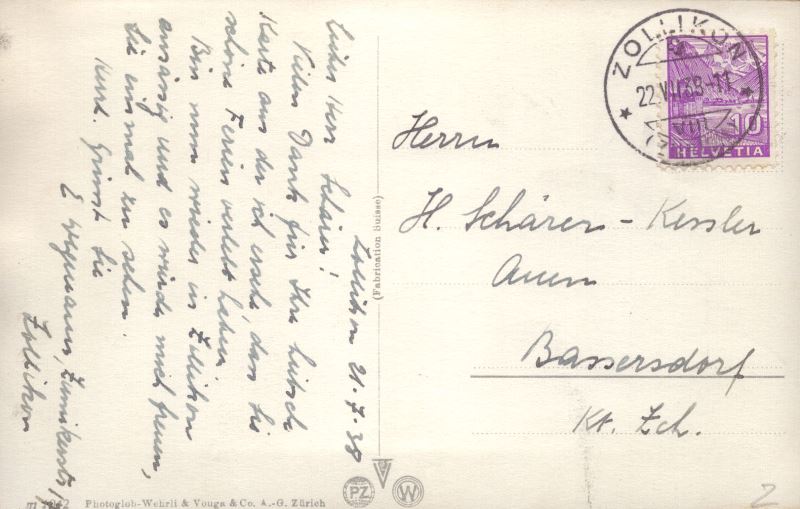 Zollikon 21.7.38
Lieber Herr Schärer!
Vielen Dank für Ihre hübsche
Karte aus der ich ersehe, dass Sie
schöne Ferien verlebt haben.
Bin nun wieder in Zollikon
ansässig und es würde mich freuen,
Sie einmal zu sehen.
Grüsst Sie
E Wegmann,
Zollikon
(Fabrication Suisse)
ZOLLIKON
22.VII.38-11
10
HELVETIA
Herrn
H. Schärer-Kessler
Auen
Bassersdorf
Kt. Zch.
Photoglob-Wehrli & Vouga & Co. A.-G. Zürich
PZ
W
Z